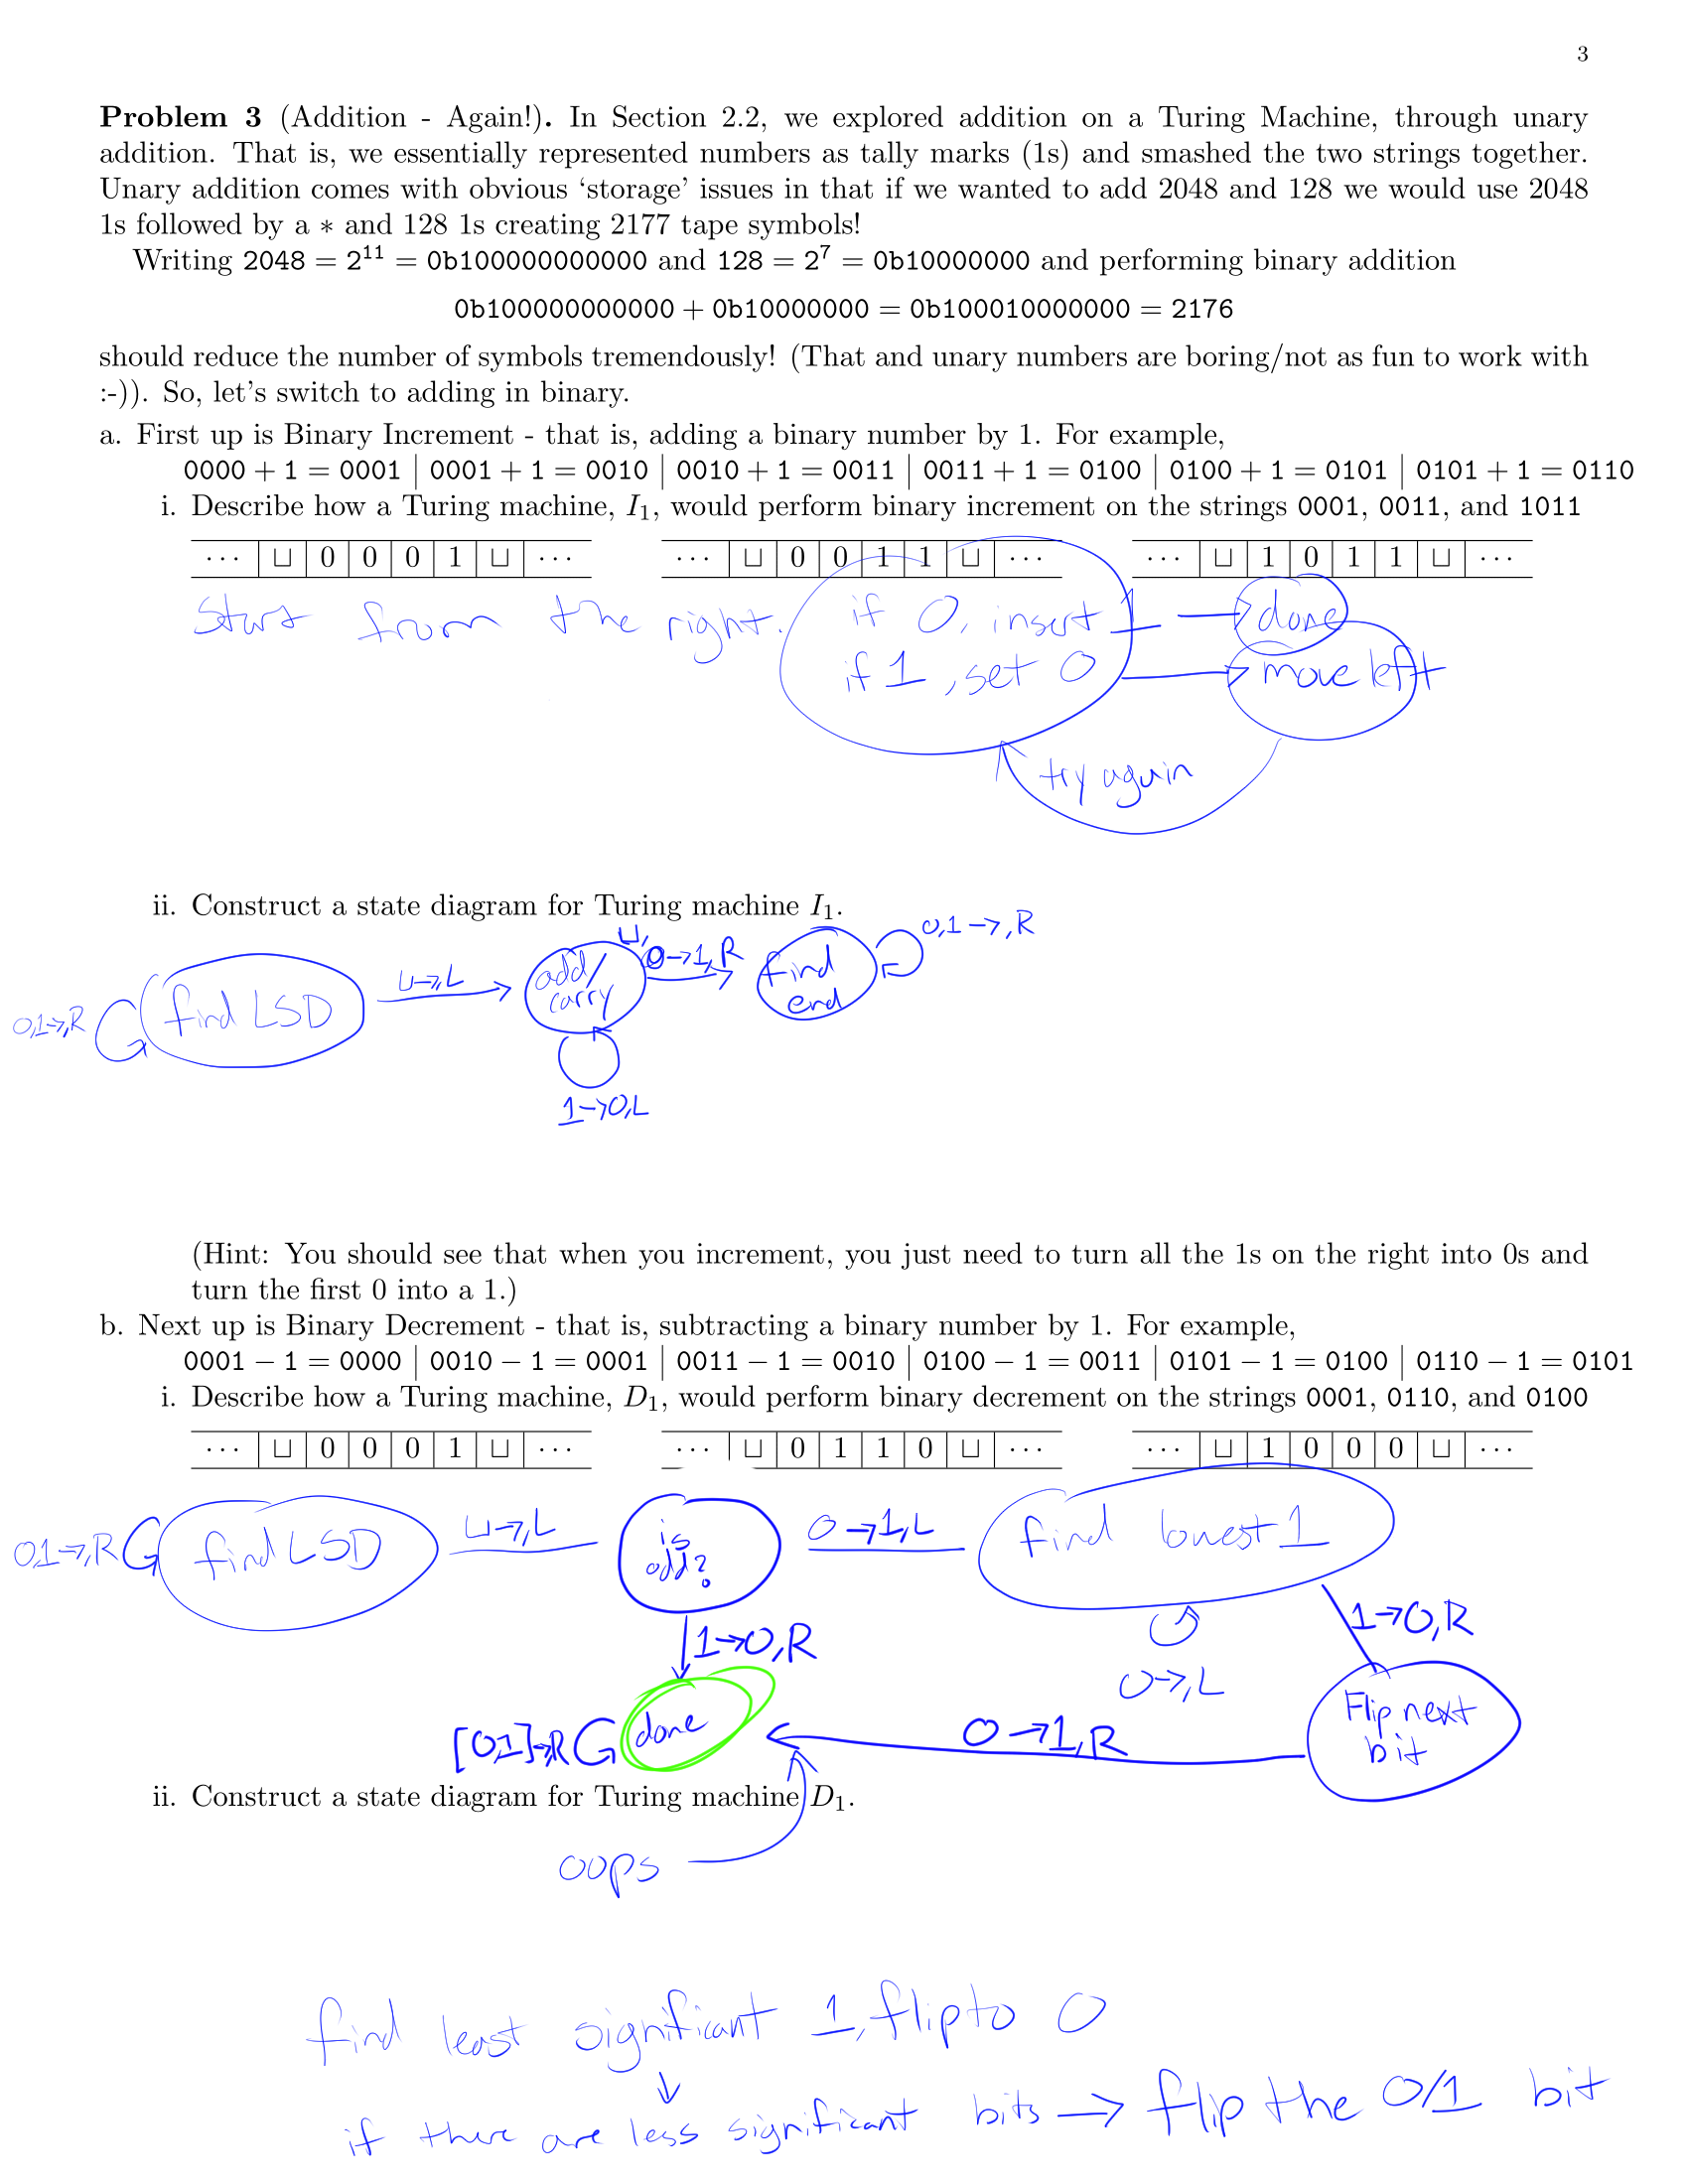 3
Problem 3 (Addition - Again!). In Section 2.2, we explored addition on a Turing Machine, through unary
addition. That is, we essentially represented numbers as tally marks (1s) and smashed the two strings together.
Unary addition comes with obvious ‘storage’ issues in that if we wanted to add 2048 and 128 we would use 2048
1s followed by a ∗ and 128 1s creating 2177 tape symbols!
Writing 2048 = 2¹¹ = 0b100000000000 and 128 = 2⁷ = 0b10000000 and performing binary addition
0b100000000000 + 0b10000000 = 0b100010000000 = 2176
should reduce the number of symbols tremendously! (That and unary numbers are boring/not as fun to work with
:-)). So, let’s switch to adding in binary.
a. First up is Binary Increment - that is, adding a binary number by 1. For example,
0000 + 1 = 0001 | 0001 + 1 = 0010 | 0010 + 1 = 0011 | 0011 + 1 = 0100 | 0100 + 1 = 0101 | 0101 + 1 = 0110
i. Describe how a Turing machine, I₁, would perform binary increment on the strings 0001, 0011, and 1011
··· ⊔ 0 0 0 1 ⊔ ··· ··· ⊔ 0 0 1 1 ⊔ ··· ··· ⊔ 1 0 1 1 ⊔ ···
Start from the right. if 0, insert 1 → done
if 1, set 0 → move left
try again
ii. Construct a state diagram for Turing machine I₁.
0,1→,R find LSD ⊔→,L add/carry ⊔,0→1,R find end 0,1→,R
1→0,L
(Hint: You should see that when you increment, you just need to turn all the 1s on the right into 0s and
turn the first 0 into a 1.)
b. Next up is Binary Decrement - that is, subtracting a binary number by 1. For example,
0001 − 1 = 0000 | 0010 − 1 = 0001 | 0011 − 1 = 0010 | 0100 − 1 = 0011 | 0101 − 1 = 0100 | 0110 − 1 = 0101
i. Describe how a Turing machine, D₁, would perform binary decrement on the strings 0001, 0110, and 0100
··· ⊔ 0 0 0 1 ⊔ ··· ··· ⊔ 0 1 1 0 ⊔ ··· ··· ⊔ 1 0 0 0 ⊔ ···
0,1→,R find LSD ⊔→,L is odd? 0→1,L find lowest 1
1→0,R 0→,L 1→0,R
[0,1]→,R done 0→1,R Flip next bit
ii. Construct a state diagram for Turing machine D₁.
oops
find least significant 1, flip to 0
↓
if there are less significant bits → flip the 0/1 bit